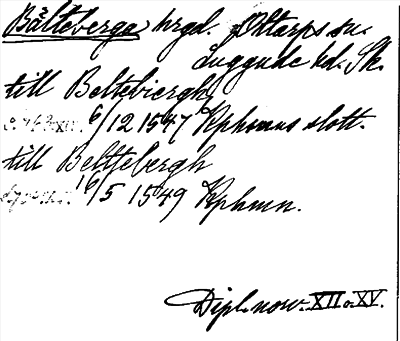 Bälteberga hrgd. Ottarps sn.
Luggude hd. Sk.
till Beltebiergh
6/12 1547 Kphmns slott.
till Beltebergh
16/5 1549 Kphmn.
Dipl. norv. XII o. XV.